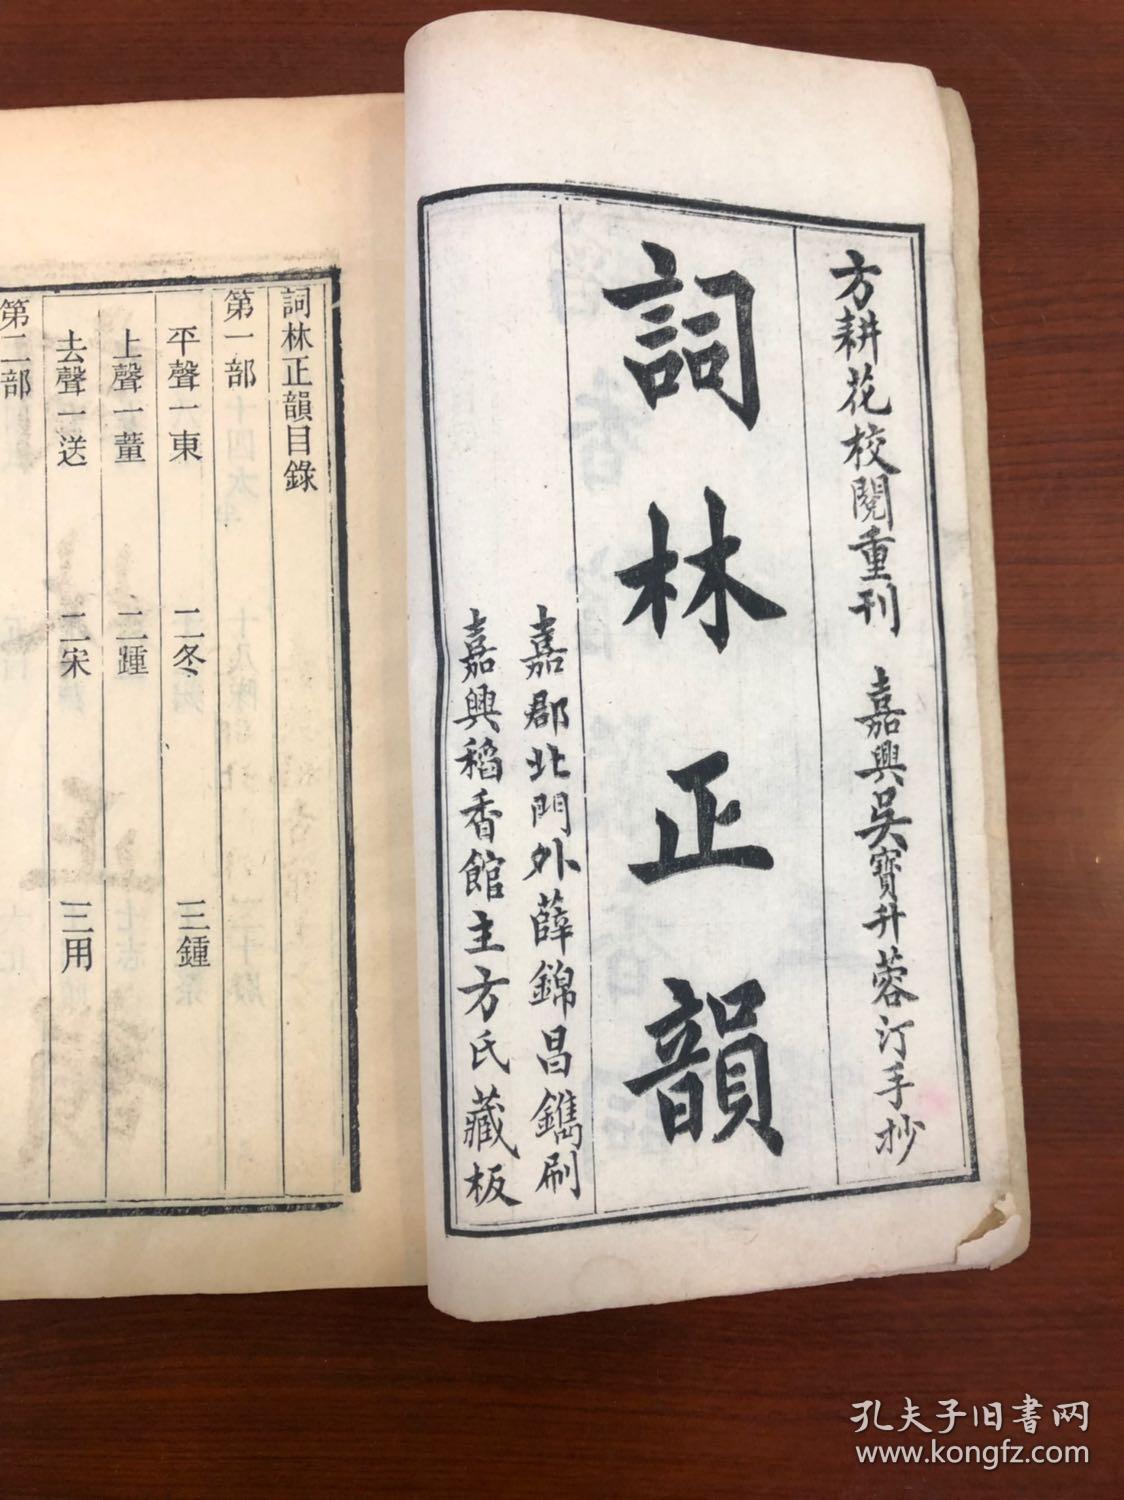 方耕花校閱重刊 嘉興吳寶升蓉汀手抄
詞林正韻
嘉郡北門外薛錦昌鐫刷
嘉興稻香館主方氏藏板
詞林正韻目錄
第一部
平聲一東 二冬 三鍾
上聲一董 二踵
去聲一送 二宋 三用
第二部
孔夫子旧书网
www.kongfz.com